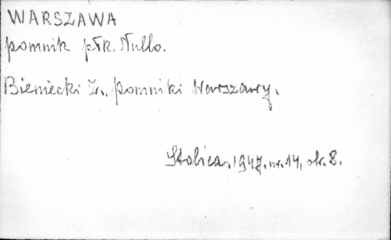 WARSZAWA
pomnik płk. Nullo.
Bieniecki Z., Pomniki Warszawy.
Stolica, 1947, nr. 14, str. 8.